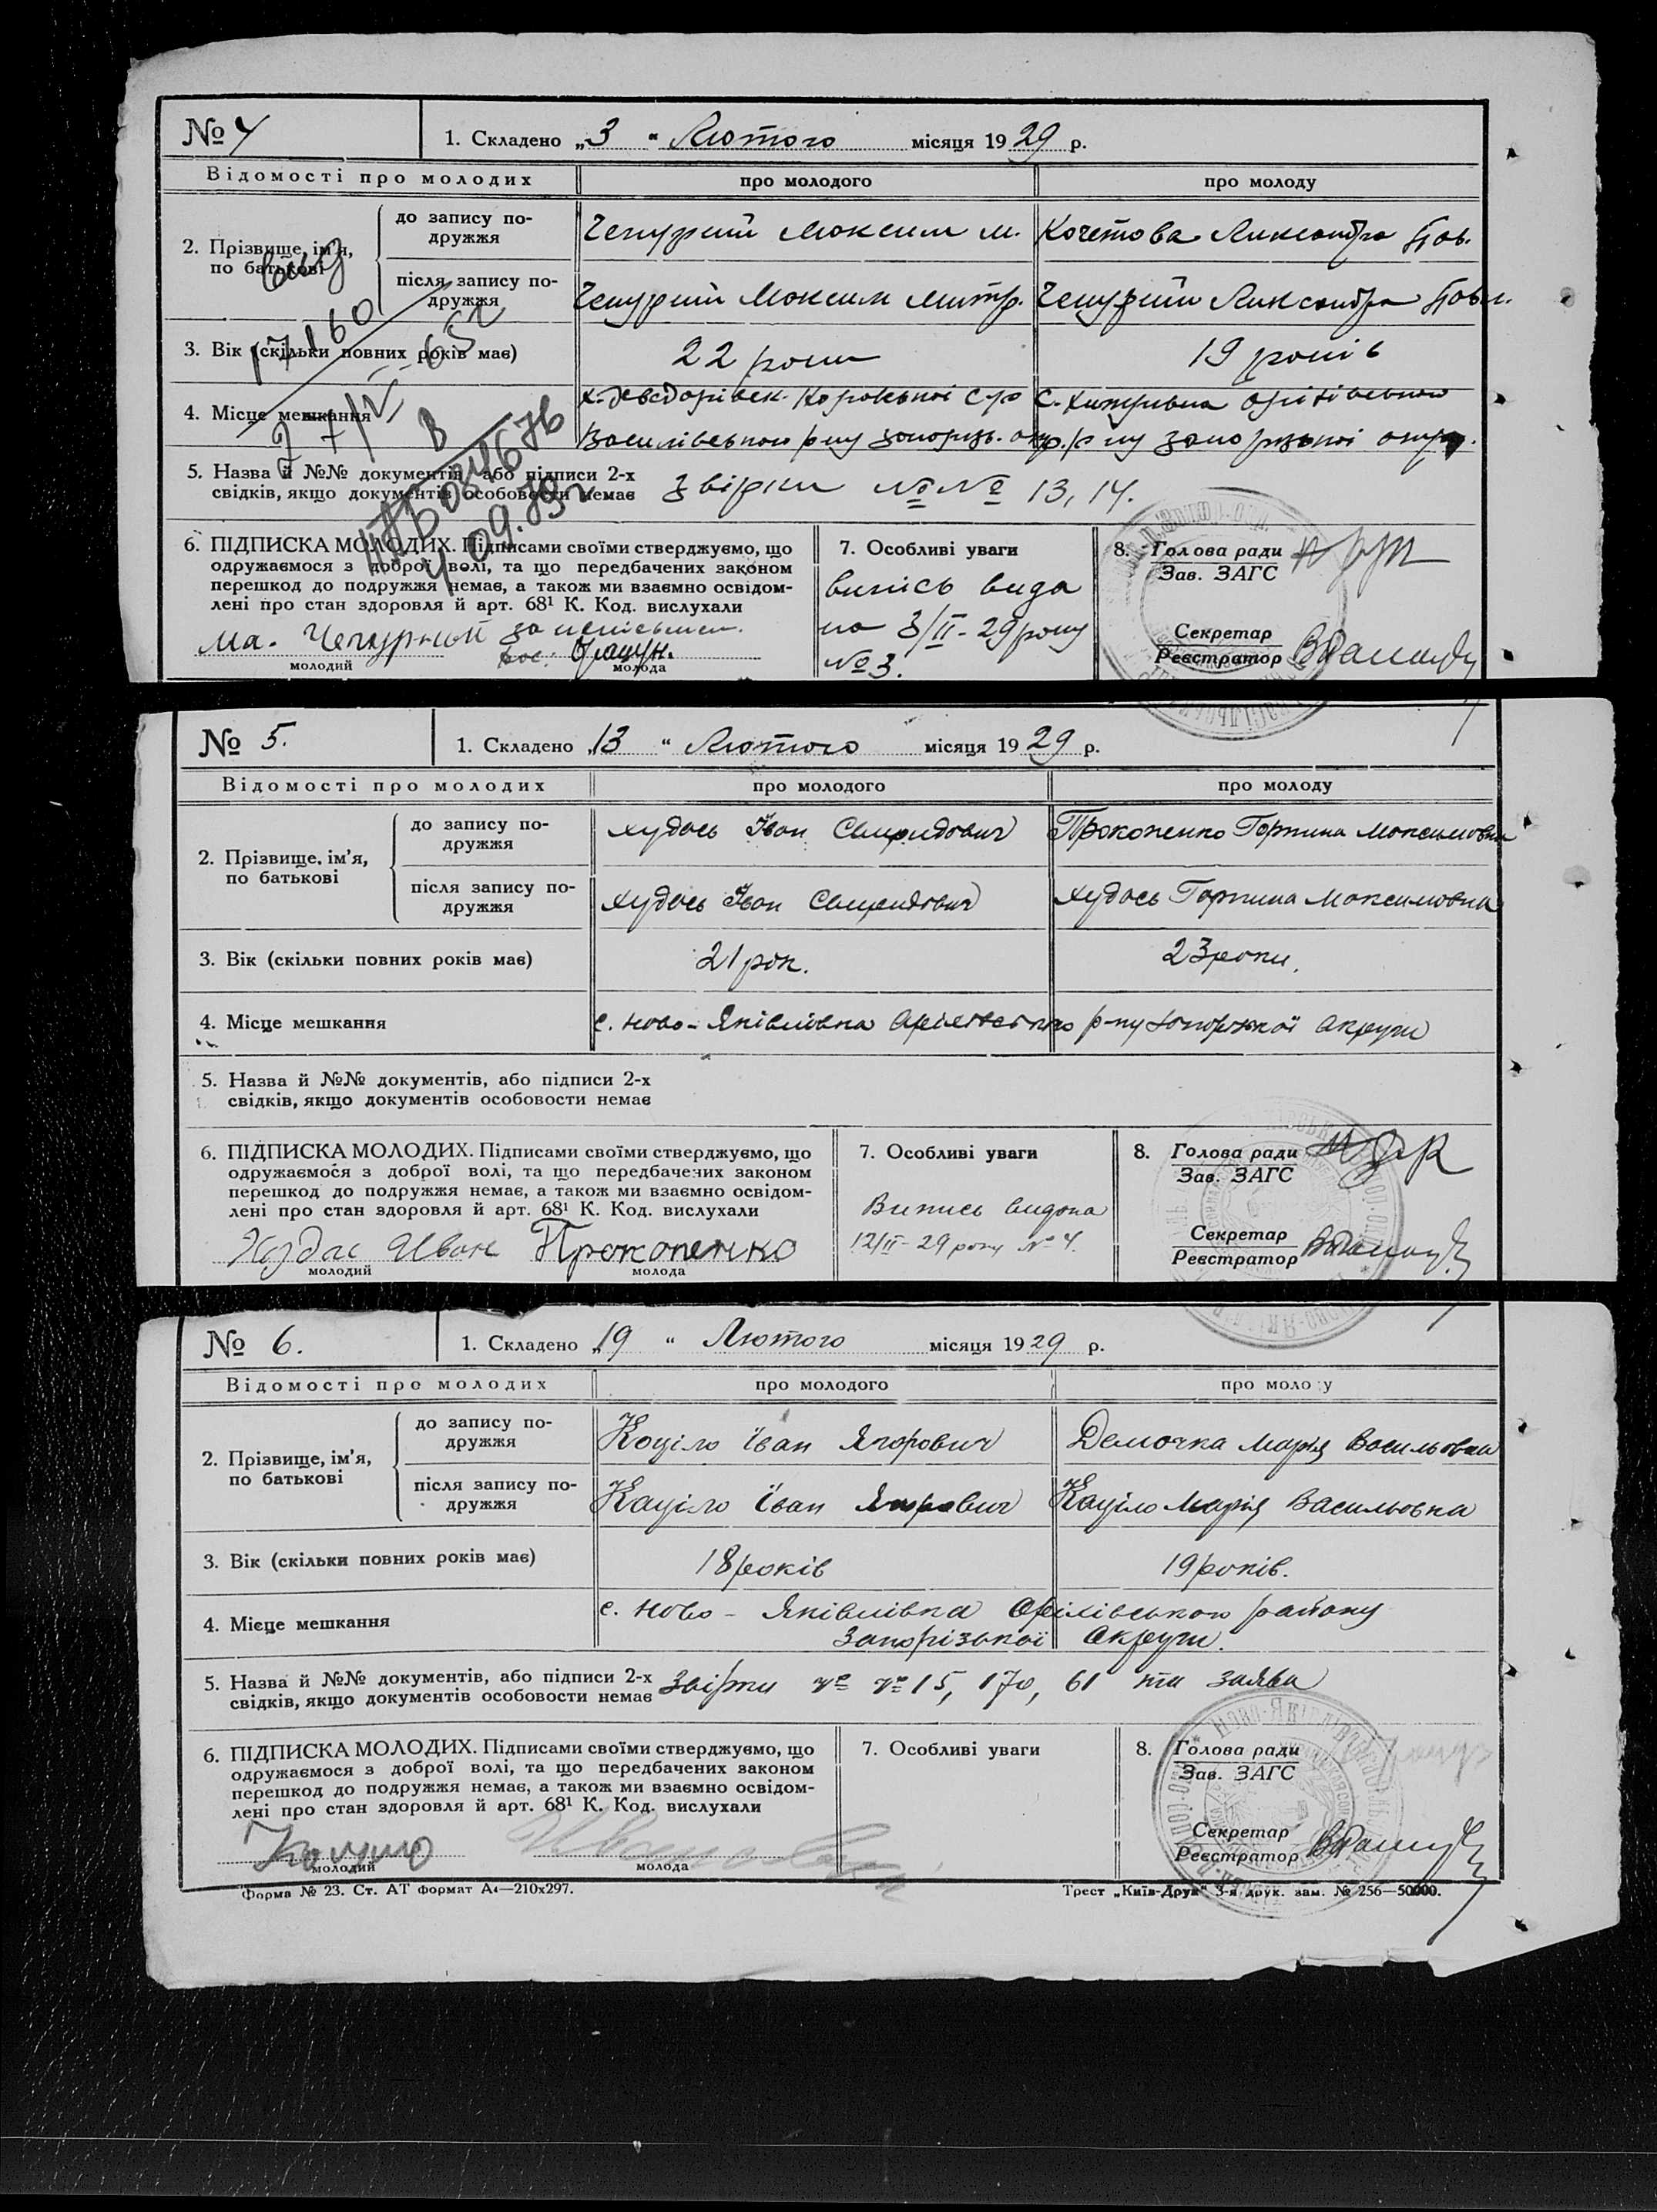 № 4
1. Складено „3“ Лютого місяця 1929 р.
Відомості про молодих
про молодого
про молоду
2. Прізвище, ім'я, по батькові
до запису подружжя
Чепурний Максим М.
Кочетова Александра Пав.
після запису подружжя
Чепурний Максим Митр.
Чепурний Александра Павл.
3. Вік (скільки повних років має)
22 роки
19 років
4. Місце мешкання
Василівського р-ну Запорізь. окр.
р-ну Запорізької окру.
5. Назва й №№ документів, або підписи 2-х
свідків, якщо документів особовости немає
Звірки №№ 13, 14.
6. ПІДПИСКА МОЛОДИХ. Підписами своїми стверджуємо, що
одружаємося з доброї волі, та що передбачених законом
перешкод до подружжя немає, а також ми взаємно освідом-
лені про стан здоровля й арт. 68¹ К. Код. вислухали
Ма. Чепурний
молодий
молода
7. Особливі уваги
випісь вида
на 3/II-29 року
№ 3.
8. Голова ради
Зав. ЗАГС
Секретар
Реєстратор
№ 5.
1. Складено „13“ Лютого місяця 1929 р.
Відомості про молодих
про молодого
про молоду
2. Прізвище, ім'я, по батькові
до запису подружжя
Худась Іван Свиридович
Прокопенко Горпина Максимовна
після запису подружжя
Худась Іван Свиридович
Худась Горпина Максимовна
3. Вік (скільки повних років має)
21 рок.
23 роки.
4. Місце мешкання
с. Ново-Яківлівка Оріхівського р-ну Запоріжкої Округи
5. Назва й №№ документів, або підписи 2-х
свідків, якщо документів особовости немає
6. ПІДПИСКА МОЛОДИХ. Підписами своїми стверджуємо, що
одружаємося з доброї волі, та що передбачених законом
перешкод до подружжя немає, а також ми взаємно освідом-
лені про стан здоровля й арт. 68¹ К. Код. вислухали
Худас Иван
молодий
Прокопенко
молода
7. Особливі уваги
Випись видана
12/II-29 року № 4.
8. Голова ради
Зав. ЗАГС
Секретар
Реєстратор
№ 6.
1. Складено „19“ Лютого місяця 1929 р.
Відомості про молодих
про молодого
про молоду
2. Прізвище, ім'я, по батькові
до запису подружжя
Коціло Іван Ягорович
Демочка Марія Васильовна
після запису подружжя
Каціло Іван Ягорович
Каціло Марія Васильовна
3. Вік (скільки повних років має)
18 років
19 років.
4. Місце мешкання
с. Ново-Яківлівка Оріхівського району
Запорізької Округи.
5. Назва й №№ документів, або підписи 2-х
свідків, якщо документів особовости немає
Звірки № № 15, 170, 61 та заява
6. ПІДПИСКА МОЛОДИХ. Підписами своїми стверджуємо, що
одружаємося з доброї волі, та що передбачених законом
перешкод до подружжя немає, а також ми взаємно освідом-
лені про стан здоровля й арт. 68¹ К. Код. вислухали
молодий
молода
7. Особливі уваги
8. Голова ради
Зав. ЗАГС
Секретар
Реєстратор
Форма № 23. Ст. АТ Формат А4—210х297.
Трест „Київ-Друк“ 3-я друк. зам. № 256—50000.